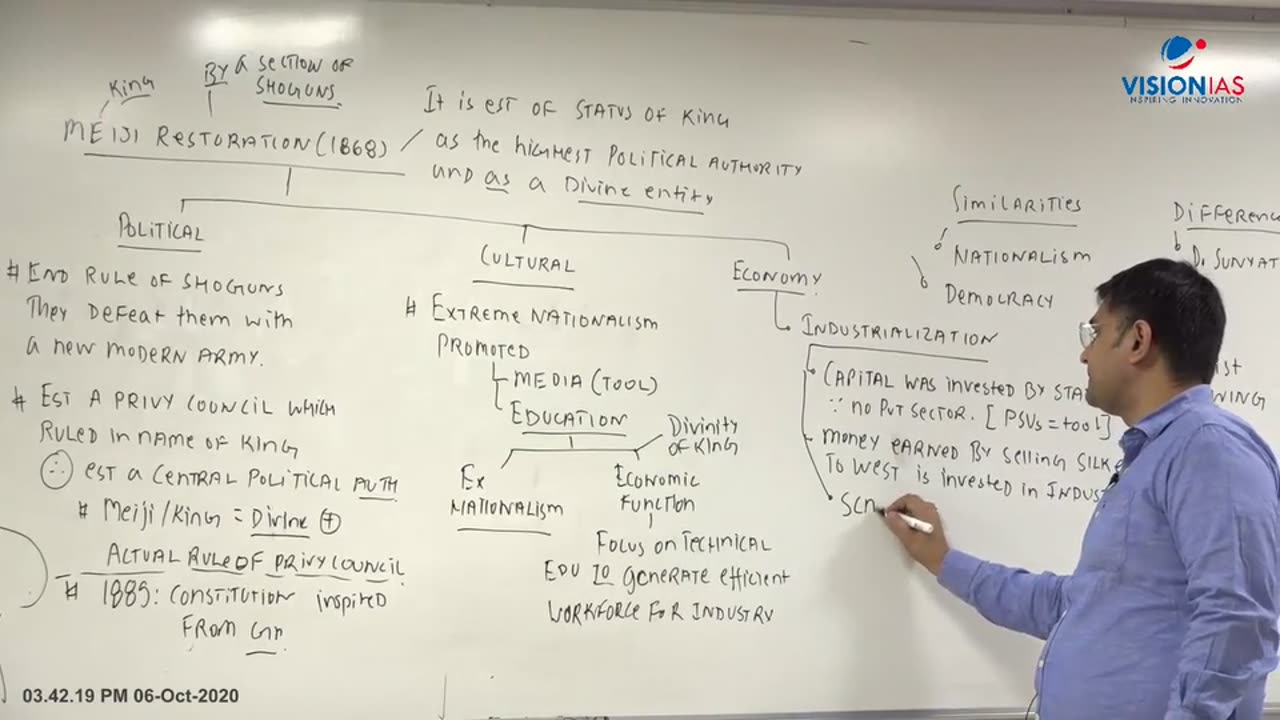 VISIONIAS
INSPIRING INNOVATION
King
BY A SECTION OF
SHOGUNS
MEIJI RESTORATION (1868)
It is EST OF STATUS OF King
as the highest POLITICAL AUTHORITY
and as a Divine entity
POLITICAL
# END RULE OF SHOGUNS
They Defeat them with
a new modern ARMY.
# EST A PRIVY COUNCIL WHICH
RULED IN NAME OF KING
∴ est a CENTRAL POLITICAL AUTH
# Meiji/King = Divine +
ACTUAL RULE OF PRIVY COUNCIL
# 1889: CONSTITUTION inspired
FROM Gn
CULTURAL
# EXTREME NATIONALISM
PROMOTED
MEDIA (TOOL)
EDUCATION
Divinity
OF KING
Ex
NATIONALISM
Economic
Function
Focus on Technical
EDU TO generate efficient
WORKFORCE FOR INDUSTRY
ECONOMY
INDUSTRIALIZATION
CAPITAL WAS invested BY STA
∵ no PVT SECTOR. [PSUs = tool]
money earned By selling SILK
To West is invested in INDUS
Scn
Similarities
NATIONALISM
DEMOCRACY
DIFFERENC
Dr SUNYAT
ist
WING
03.42.19 PM 06-Oct-2020